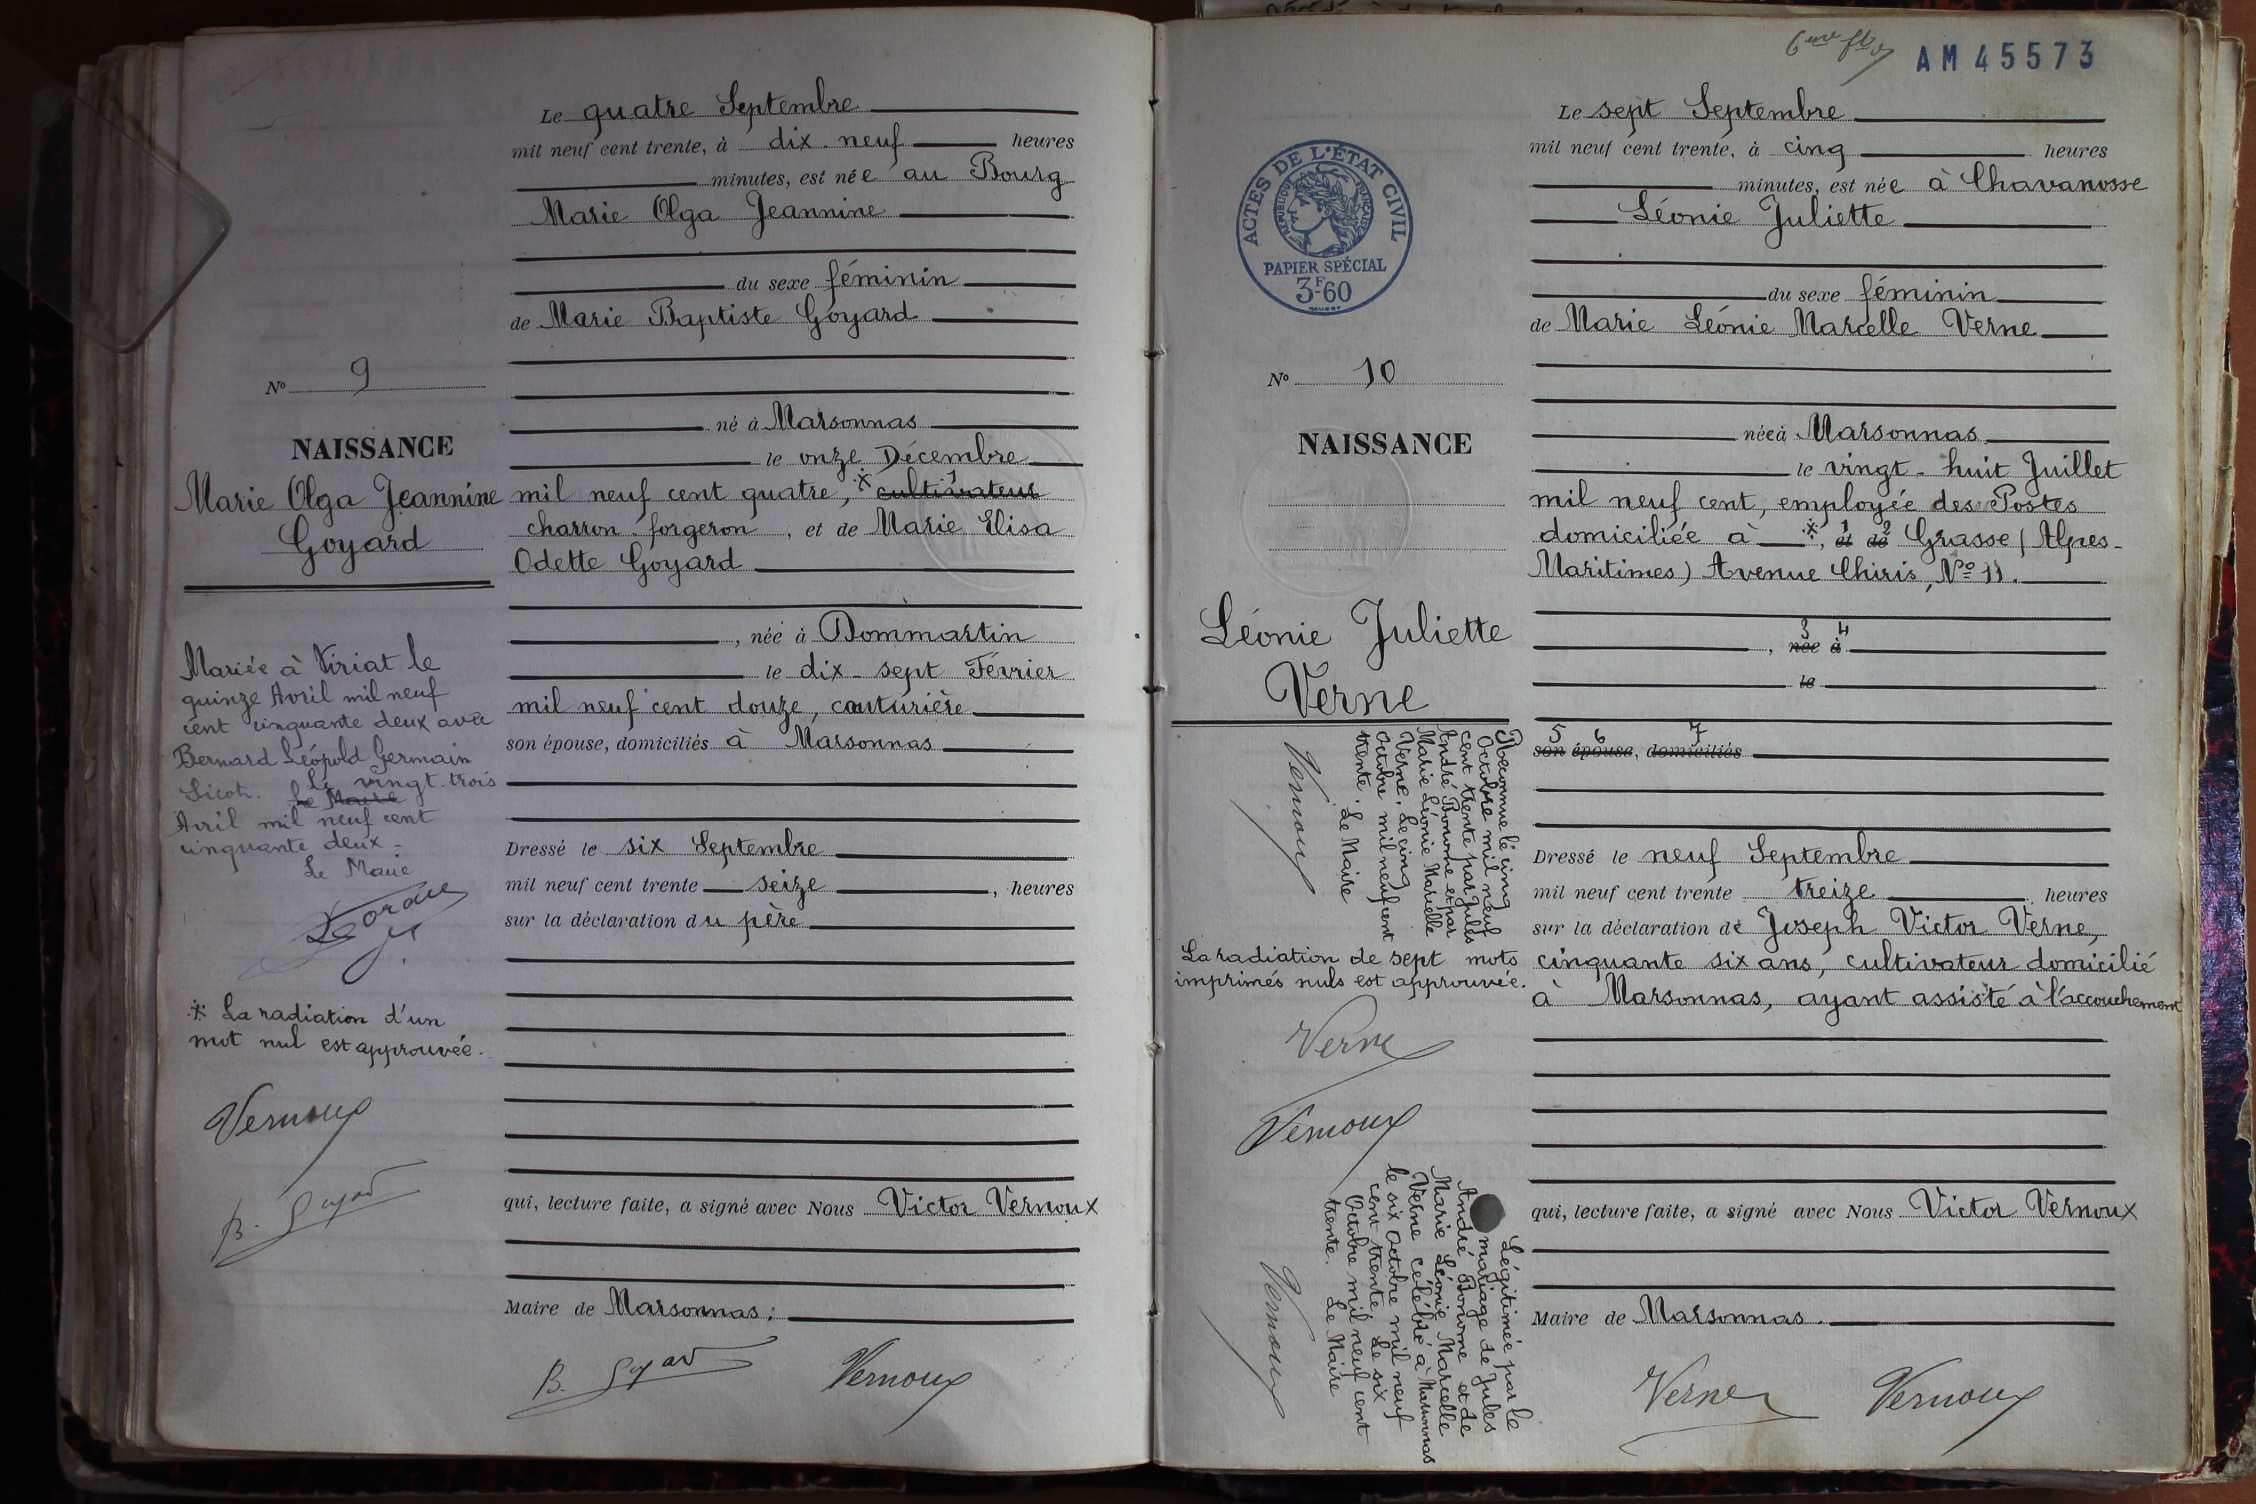 Le quatre Septembre
mil neuf cent trente, à dix-neuf heures
minutes, est née au Bourg
Marie Olga Jeannine
du sexe féminin
de Marie Baptiste Goyard
né à Marsonnas
le onze Décembre
mil neuf cent quatre, * cultivateur
charron-forgeron, et de Marie Elisa
Odette Goyard
, née à Dommartin
le dix-sept Février
mil neuf cent douze, couturière
son épouse, domiciliés à Marsonnas
Dressé le six Septembre
mil neuf cent trente seize, heures
sur la déclaration du père
qui, lecture faite, a signé avec Nous Victor Vernoux
Maire de Marsonnas :
B. Goyard Vernoux
No 9
NAISSANCE
Marie Olga Jeannine
Goyard
Mariée à Viriat le
quinze Avril mil neuf
cent cinquante deux avec
Bernard Léopold Germain
Sicot. Le vingt-trois
Le Maire
Avril mil neuf cent
cinquante deux -
Le Maire
* La radiation d'un
mot nul est approuvée.
Vernoux
B. Goyard
AM 45573
ACTES DE L'ÉTAT CIVIL
RÉPUBLIQUE FRANÇAISE
PAPIER SPÉCIAL
3F60
Le sept Septembre
mil neuf cent trente, à cinq heures
minutes, est née à Chavanosse
Léonie Juliette
du sexe féminin
de Marie Léonie Marcelle Verne
née à Marsonnas
le vingt-huit Juillet
mil neuf cent, employée des Postes
domiciliée à *, 1 et 2 de Grasse (Alpes-
Maritimes) Avenue Chiris, No 11.
3 4
, née à
le
5 6 7
son épouse, domiciliés
Dressé le neuf Septembre
mil neuf cent trente treize heures
sur la déclaration de Joseph Victor Verne,
cinquante six ans, cultivateur domicilié
à Marsonnas, ayant assisté à l'accouchement
qui, lecture faite, a signé avec Nous Victor Vernoux
Maire de Marsonnas.
Verne Vernoux
No 10
NAISSANCE
Léonie Juliette
Verne
Reconnue le cinq
Octobre mil neuf
cent trente par Jules
André Bonome et par
Marie Léonie Marcelle
Verne. Le cinq
Octobre mil neuf cent
trente. Le Maire
Vernoux
La radiation de sept mots
imprimés nuls est approuvée.
Verne
Vernoux
Légitimée par le
mariage de Jules
André Bonome et de
Marie Léonie Marcelle
Verne célébré à Marsonnas
le six Octobre mil neuf
cent trente. Le six
Octobre mil neuf cent
trente. Le Maire
Vernoux